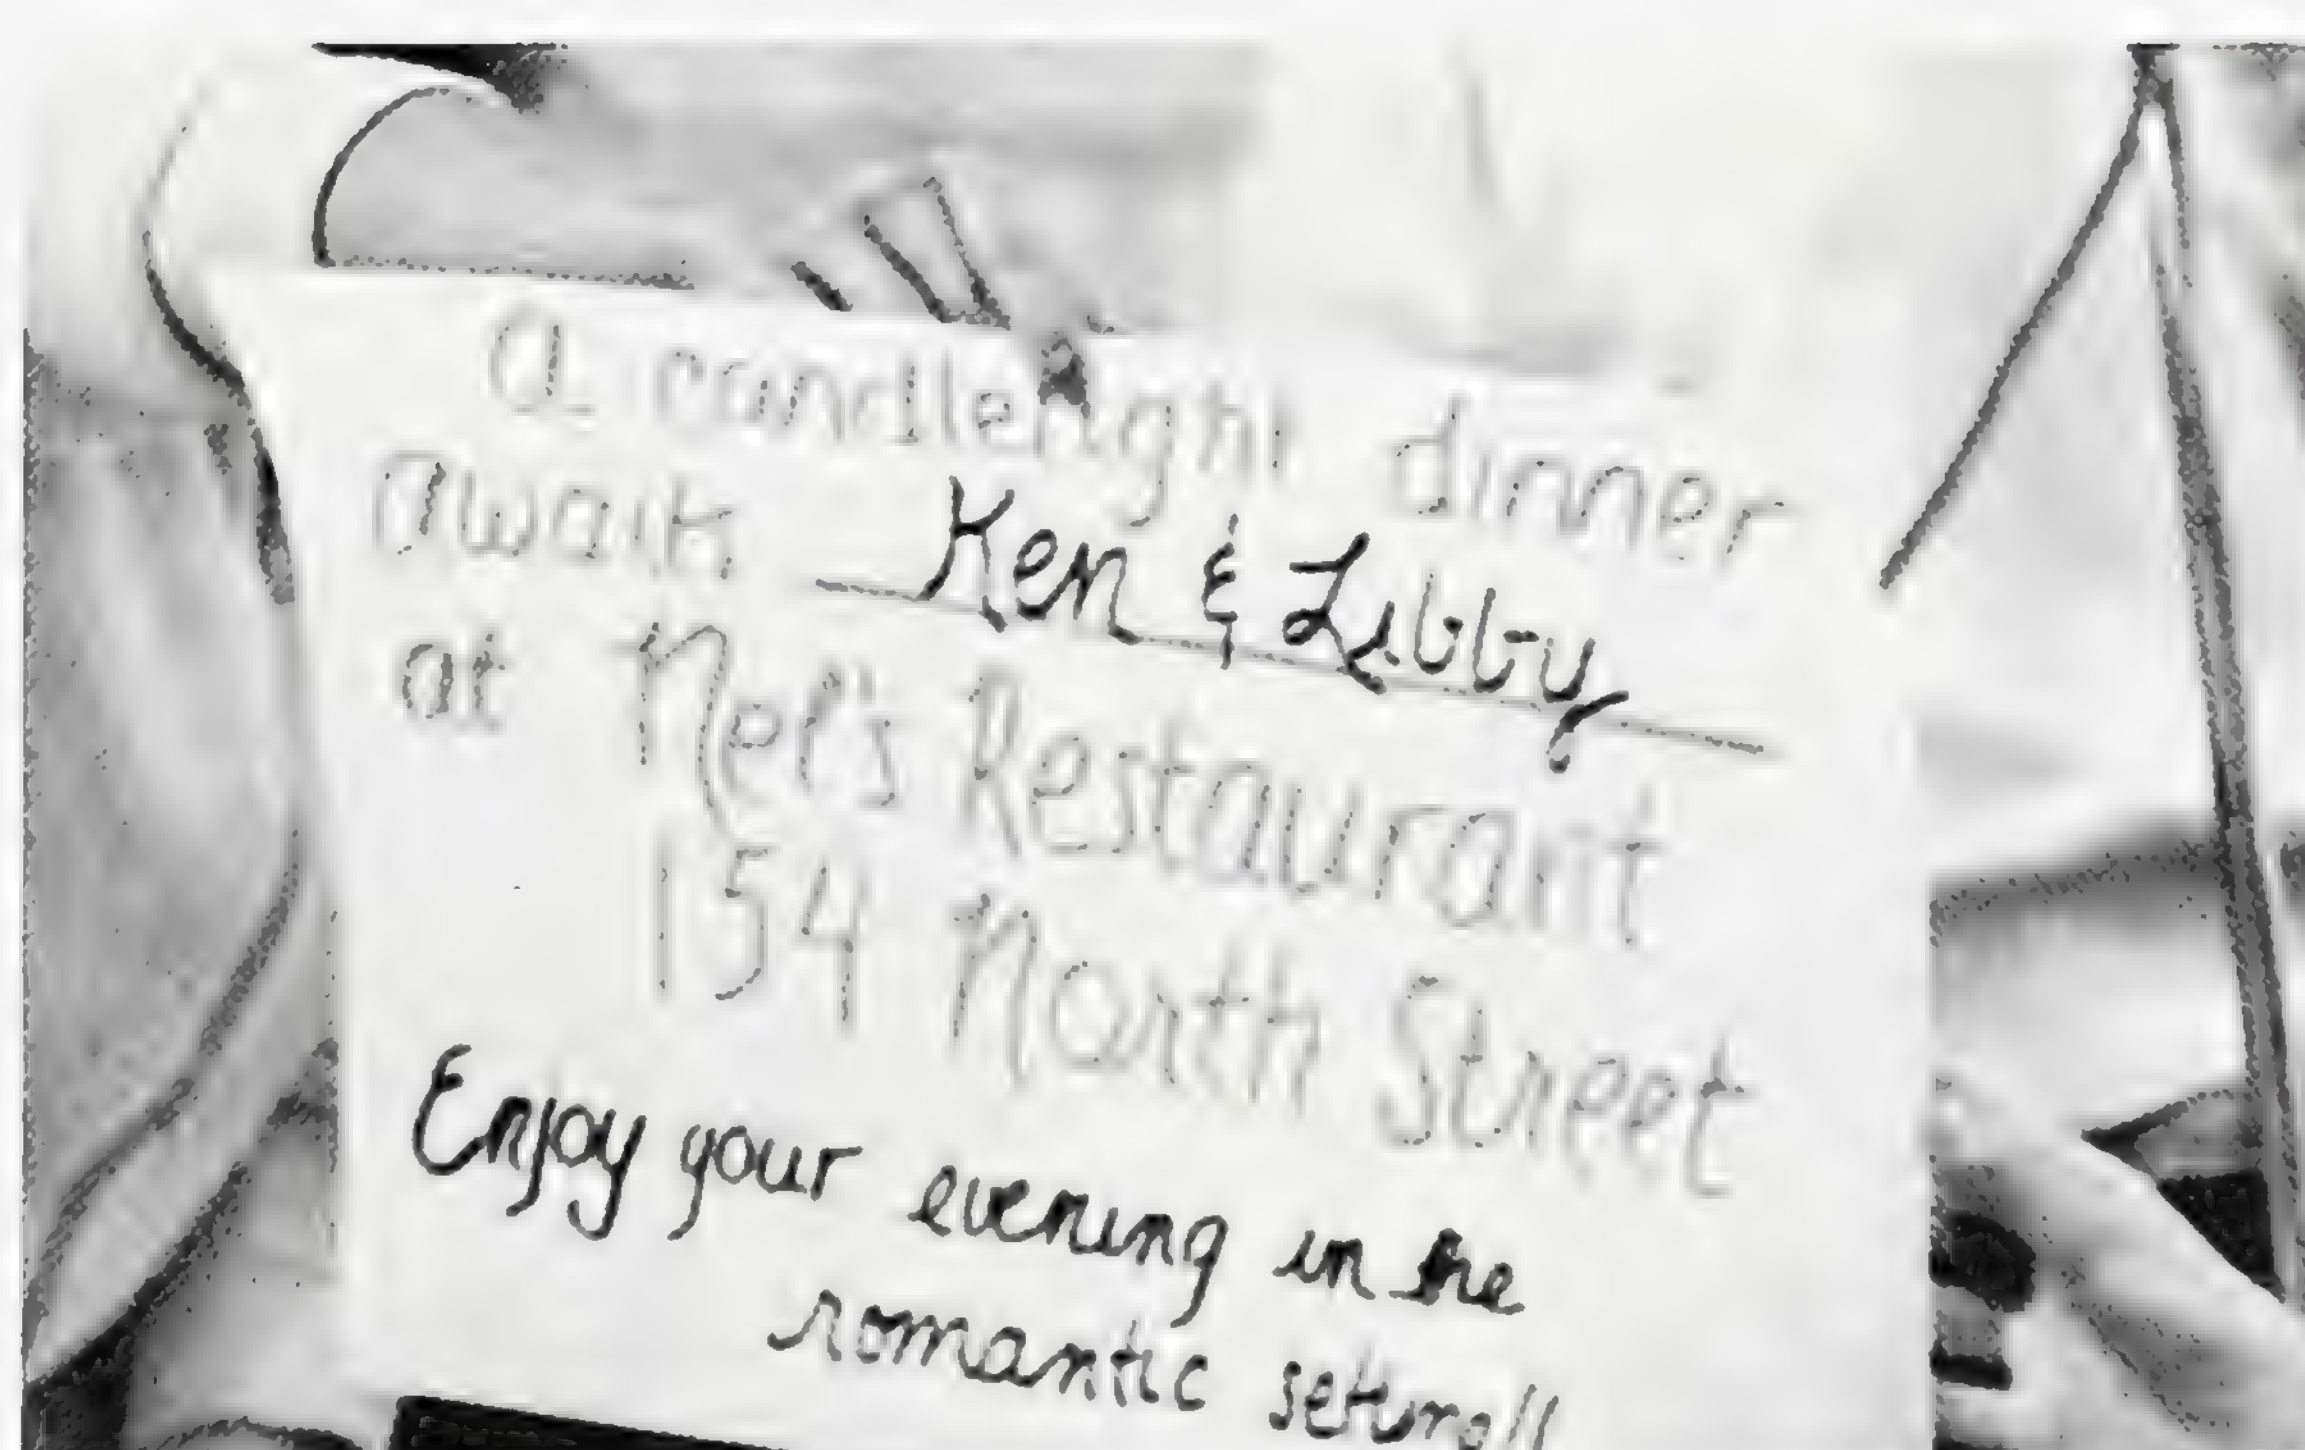 a candlelight dinner
await Ken & Libby
at Nel's Restaurant
154 North Street
Enjoy your evening in the
romantic